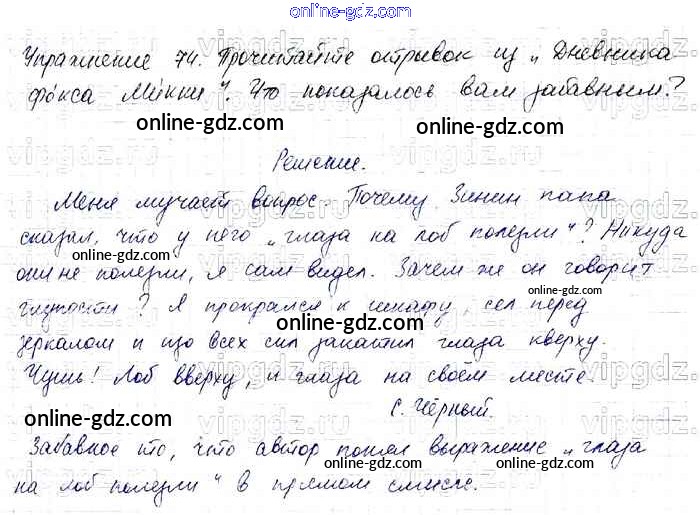 online-gdz.com
Упражнение 74. Прочитайте отрывок из „Дневника
фокса Микки". Что показалось вам забавным?
online-gdz.com online-gdz.com
Решение.
Меня мучает вопрос. Почему Зинин папа
сказал, что у него „глаза на лоб полезли"? Никуда
они не полезли, я сам видел. Зачем же он говорит
online-gdz.com
глупости? Я прокрался к шкафу, сел перед
online-gdz.com
зеркалом и изо всех сил закатил глаза кверху.
Чушь! Лоб вверху, и глаза на своём месте.
online-gdz.com
С. Чёрный.
online-gdz.com
Забавное то, что автор понял выражение „глаза
online-gdz.com
на лоб полезли" в прямом смысле.
online-gdz.com